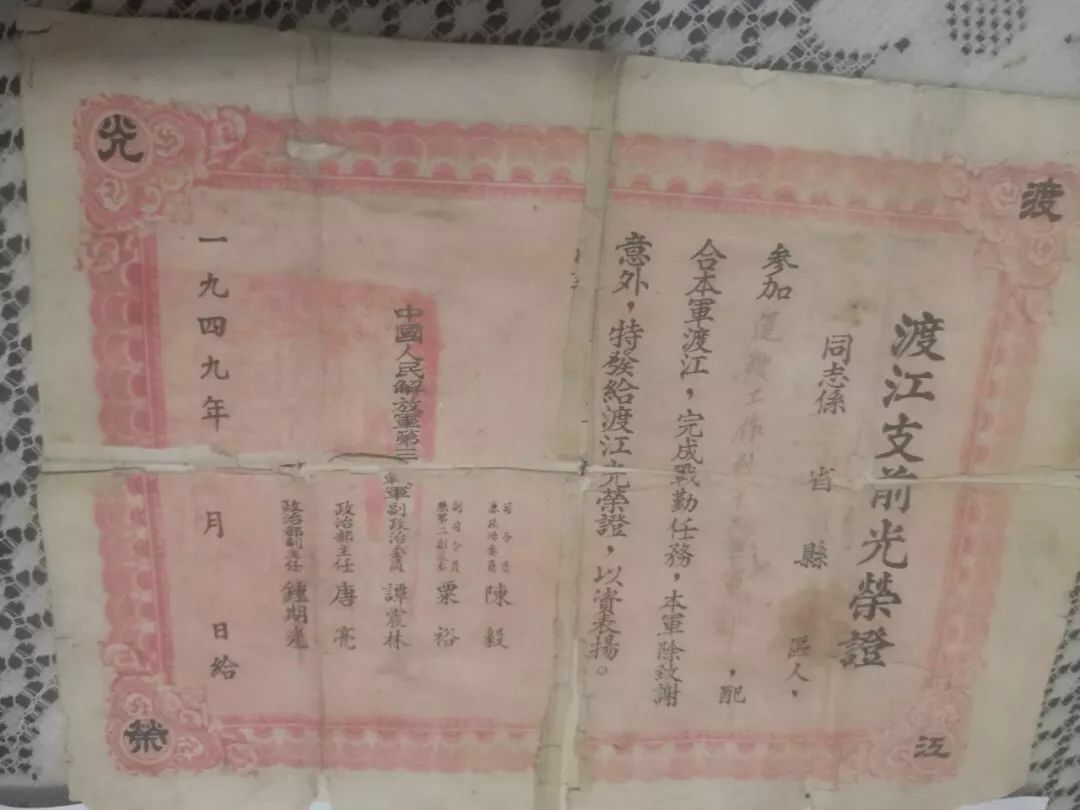 渡江光榮
渡江支前光榮證
同志係 省 縣 區人，
參加運輸工作 ，配
合本軍渡江，完成戰勤任務，本軍除致謝
意外，特發給渡江光榮證，以資表揚。
司令員兼政治委員 陳毅
副司令員兼第二副政委 粟裕
中國人民解放軍第三野戰軍副政治委員 譚震林
政治部主任 唐亮
政治部副主任 鍾期光
一九四九年 月 日給